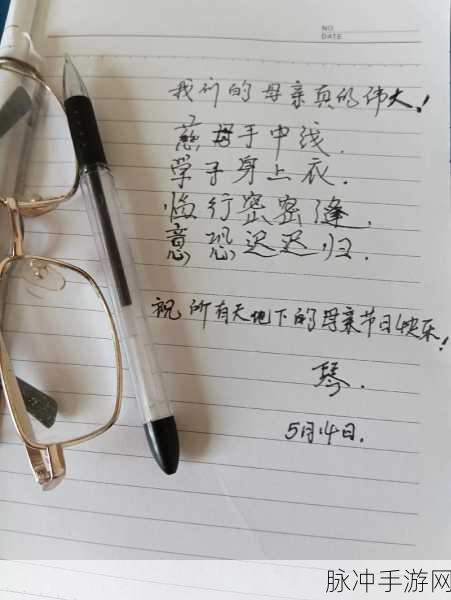 NO.
DATE.
我们的母亲真的伟大!
慈母手中线.
学子身上衣.
临行密密缝.
意恐迟迟归.
祝所有天地下的母亲节日快乐!
琴.
5月14日.
脉冲手游网